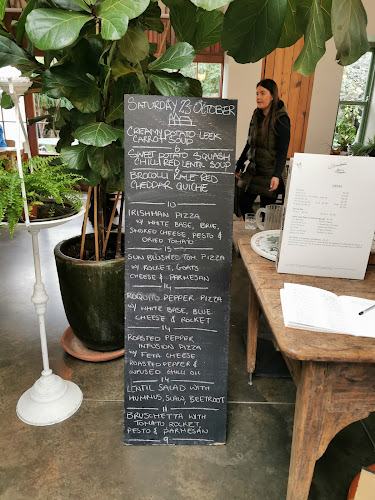 SATURDAY 23 OCTOBER
CREAMY POTATO LEEK
CARROT SOUP
&
SWEET POTATO SQUASH
CHILLI RED LENTIL SOUP
&
BROCOLLI KALE RED
CHEDDAR QUICHE
10
IRISHMAN PIZZA
W/ WHITE BASE, BRIE,
SMOKED CHEESE, PESTO &
DRIED TOMATO
15
SUN BLUSHED TOM. PIZZA
W/ ROCKET, GOATS
CHEESE & PARMESAN
14
ROQUITO PEPPER PIZZA
W/ WHITE BASE, BLUE
CHEESE & ROCKET
14
ROASTED PEPPER
INFUSION PIZZA
W/ FETA CHEESE
ROASTED PEPPER &
INFUSED CHILLI OIL
14
LENTIL SALAD WITH
HUMMUS, SLAW, BEETROOT
11
BRUSCHETTA WITH
TOMATO ROCKET,
PESTO & PARMESAN
9